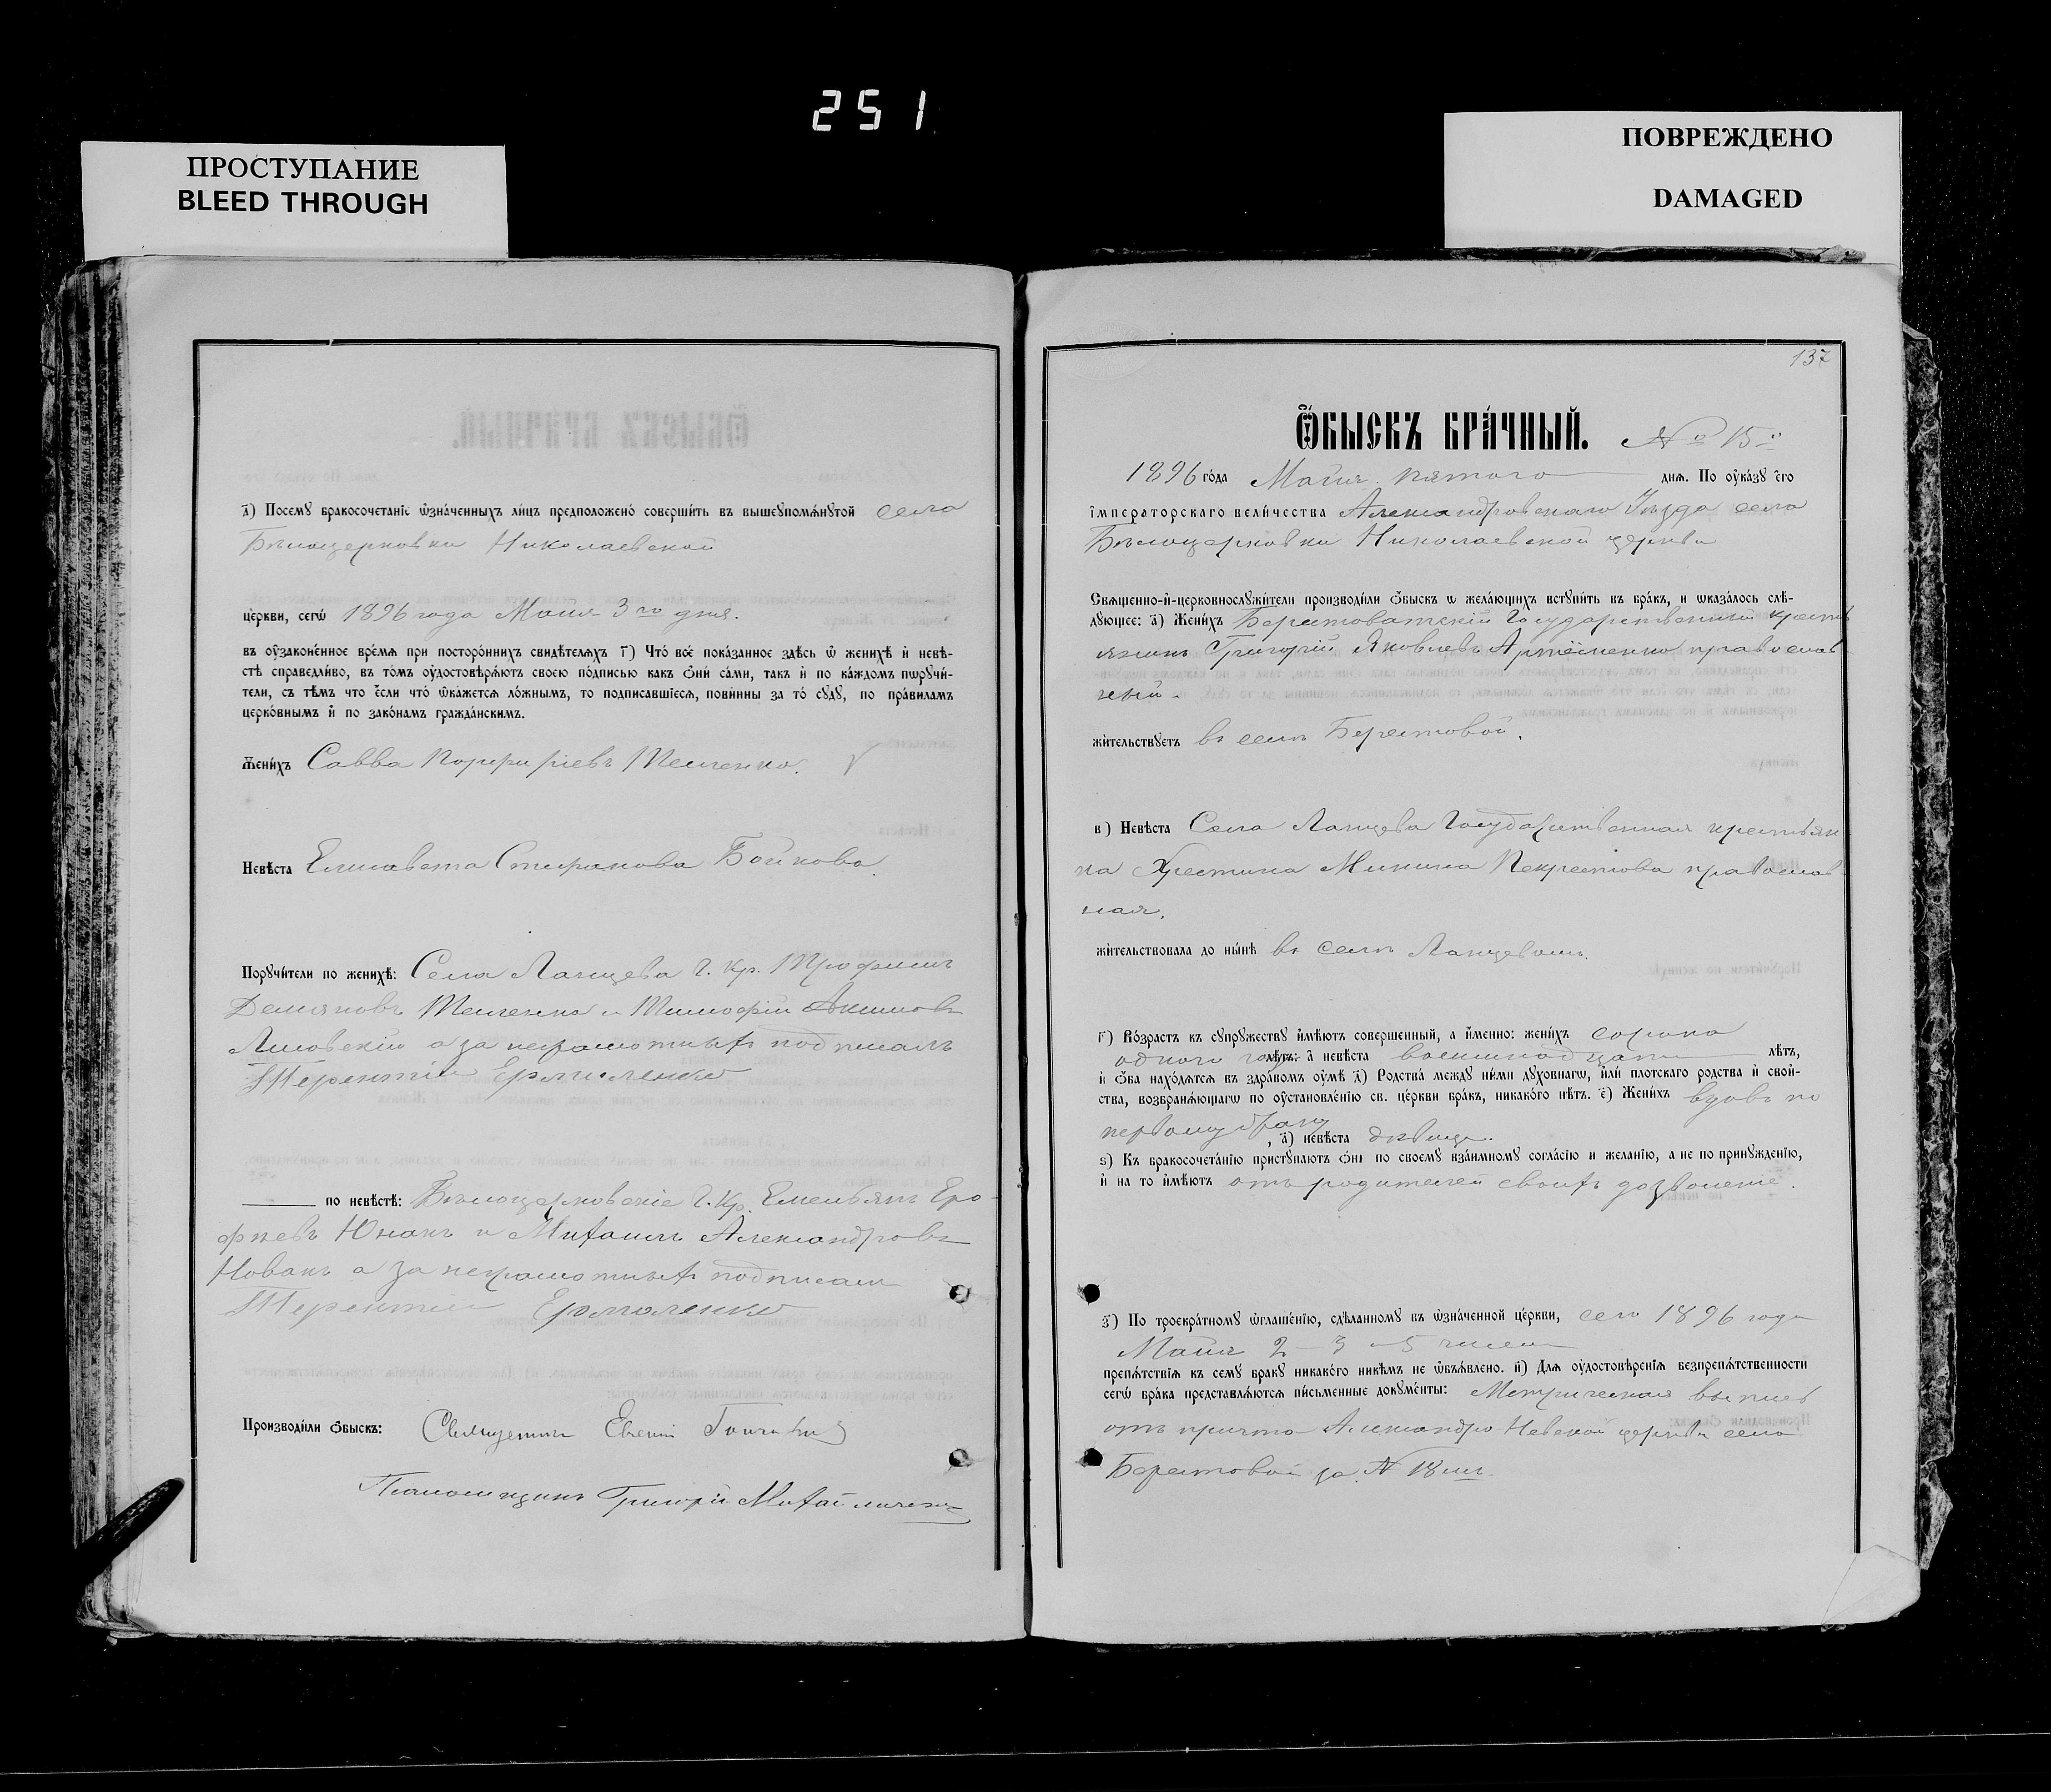 251
ПРОСТУПАНИЕ
BLEED THROUGH
ПОВРЕЖДЕНО
DAMAGED
а҃і) Посему бракосочетаніе ѡзначенныхъ лицъ предположено совершить въ вышеупомянутой села
Бѣлоцерковки Николаевской
церкви, сегѡ 1896 года Мая 3го дня.
въ оузаконенное время при постороннихъ свидѣтеляхъ г҃і) Что все показанное здѣсь ѡ женихѣ и невѣ-
стѣ справедливо, въ томъ оудостовѣряютъ своею подписью какъ ѻни сами, такъ и по каждомъ пѡручи-
тели, съ тѣмъ что если что ѡкажется ложнымъ, то подписавшіеся, повинны за то суду, по правиламъ
церковнымъ и по законамъ гражданскимъ.
Женихъ Савва Порфиріевъ Темченко.
Невѣста Елисавета Стефанова Бойкова.
Поручители по женихѣ: Села Ланцева Г. Кр. Трофимъ
Демяновъ Темченко и Тимофій Акимовъ
Лисовскій а за неграмотныхъ подписалъ
Терентій Ермоленко
по невѣстѣ: Бѣлоцерковскіе Г. Кр. Емельянъ Еро-
фѣевъ Юнакъ и Михаилъ Александровъ
Новакъ а за неграмотныхъ подписалъ
Терентій Ермоленко
Производили ѻбыскъ: Священникъ Евгеній
Псаломщикъ Григорій Михайличенко
137
Ѻбыскъ брачный. № 15й
1896 года Майя пятого дня. По оуказу его
императорскаго величества Александровскаго Уѣзда села
Бѣлоцерковки Николаевской церкви
Священно-и-церковнослужители производили ѻбыскъ ѡ желающихъ вступить въ бракъ, и ѡказалось слѣ-
дующее: а҃) Женихъ Берестоватскій Государственный крестъ
янинъ Григорій Яковлевъ Артёменко православ
ный.
жительствуетъ въ селѣ Берестовой.
в҃) Невѣста Села Ланцева Государственная крестьян
ка Христина Минина Некрестова православ
ная.
жительствовала до нынѣ въ селѣ Ланцевомъ.
г҃) Возрастъ къ супружеству имѣютъ совершенный, а именно: женихъ сорока
одного года лѣтъ: а невѣста восемнадцати лѣтъ,
и ѻба находятся въ здравомъ оумѣ д҃) Родства между ними духовнагѡ, или плотскаго родства и свой-
ства, возбраняющагѡ по оустановленію св. церкви бракъ, никакого нѣтъ. е҃) Женихъ вдовъ по
первому браку, а҃) невѣста дѣвица.
ѕ҃) Къ бракосочетанію приступаютъ ѻни по своему взаимному согласію и желанію, а не по принужденію,
и на то имѣютъ отъ родителей своихъ дозволеніе.
з҃) По троекратному ѡглашенію, сдѣланному въ ѡзначенной церкви, сего 1896 года
Майя 2 – 3 и 5 чиселъ
препятствія къ сему браку никакого никѣмъ не ѡбъявлено. и҃) Для оудостовѣренія безпрепятственности
сегѡ брака представляются письменные документы: Метрическая выпись
отъ причта Александро Невской церкви села
Берестовой за № 18мъ.